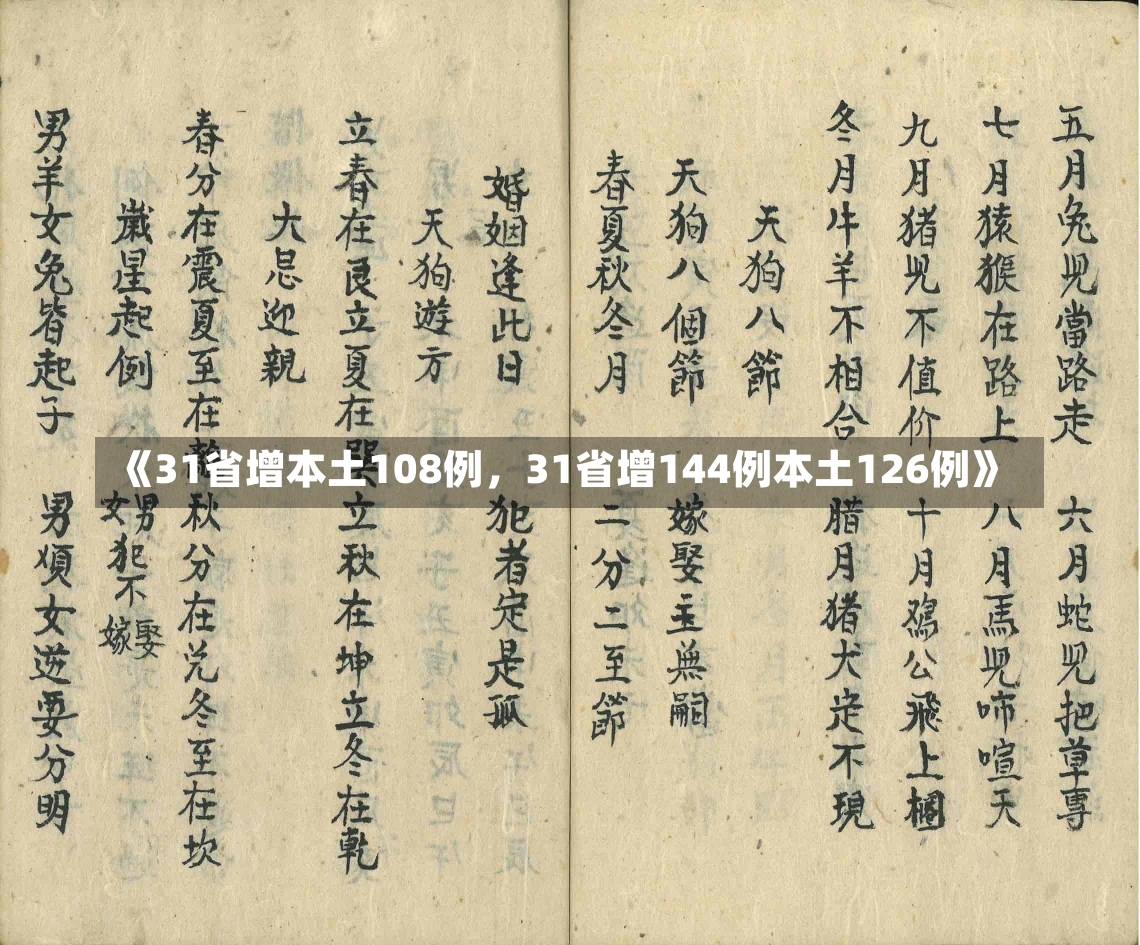 五月兔児當路走 六月蛇児把草專
七月猿猴在路上 八月馬児啼喧天
九月猪児不值价 十月鸡公飛上欄
冬月牛羊不相合 腊月猪犬定不現
天狗八節
天狗八個節 嫁娶主無嗣
春夏秋冬月 二分二至節
婚姻逢此日 犯者定是孤
天狗遊方
立春在艮立夏在巽立秋在坤立冬在乾
大忌迎親
春分在震夏至在離秋分在兑冬至在坎
歲星起例 男犯不娶
女犯不嫁
男羊女兔皆起子 男順女逆要分明
《31省增本土108例，31省增144例本土126例》